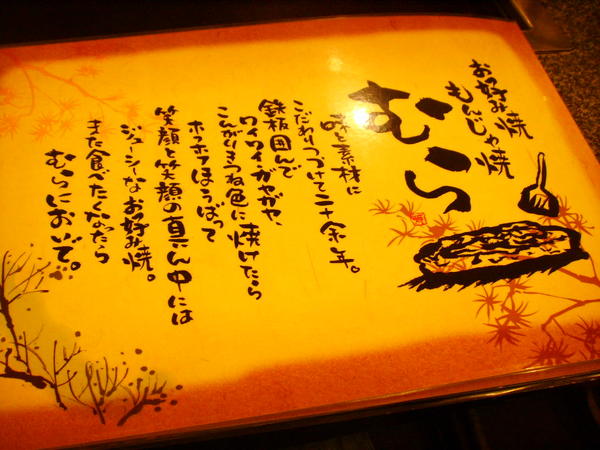 お好み焼
もんじゃ焼
むら
味と素材に
こだわりつづけて二十余年。
鉄板囲んで
ワイワイガヤガヤ、
こんがりきつね色に焼けたら
ホホアほうばって
笑顔と笑顔の真ん中には
ジューシーなお好み焼。
また食べたくなったら
むらにおいで。